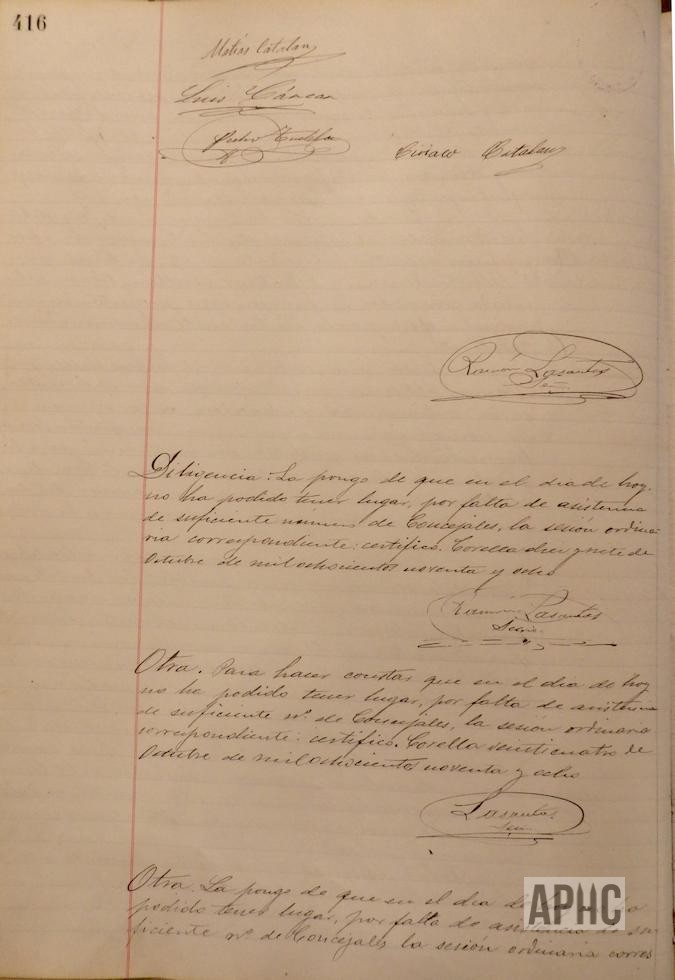 416
Matías Catalan
Luis
Pedro
Ciriaco Catalan
Ramón Lasantos
Srio.
Diligencia. La pongo de que en el dia de hoy
no ha podido tener lugar, por falta de asistencia
de suficiente número de Concejales, la sesión ordina
ria correspondiente: certifico. Corella diez y siete de
Octubre de mil ochocientos noventa y ocho
Ramón Lasantos
Srio.
Otra. Para hacer constar que en el dia de hoy
no ha podido tener lugar, por falta de asistencia
de suficiente nº. de Concejales, la sesión ordinaria
correspondiente: certifico. Corella veinticuatro de
Octubre de mil ochocientos noventa y ocho
Lasantos
Srio.
Otra. La pongo de que en el dia de
podido tener lugar, por falta de asistencia de su
ficiente nº. de Concejales la sesión ordinaria corres
APHC